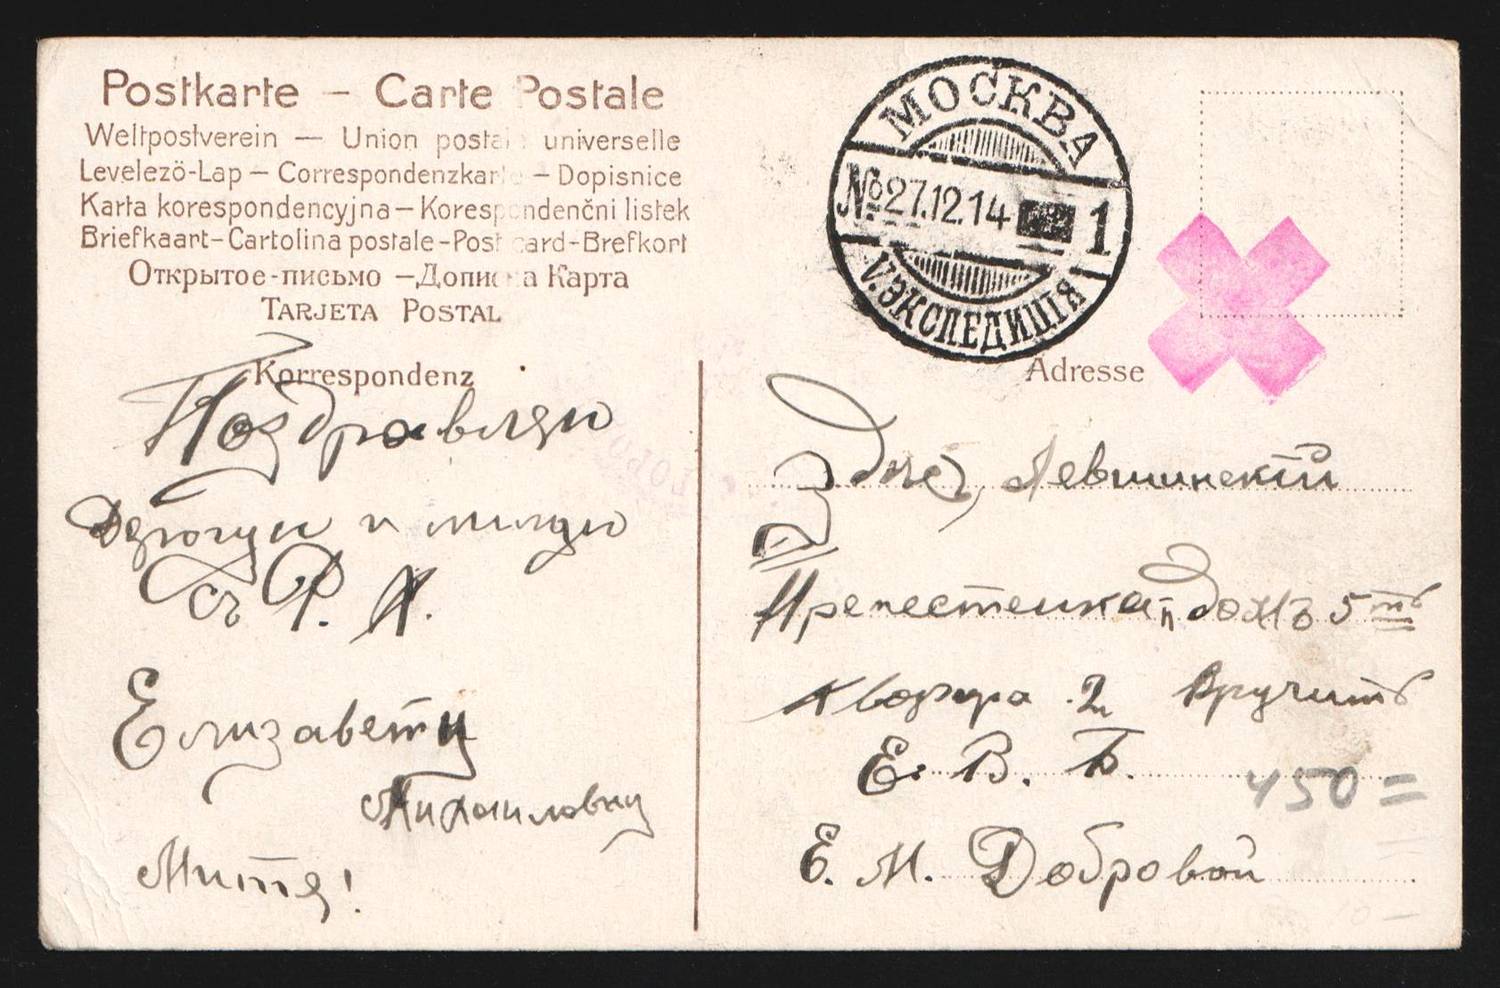 Postkarte – Carte Postale
Weltpostverein — Union postale universelle
Levelező-Lap – Correspondenzkarte – Dopisnice
Karta korespondencyjna – Korespondenčni listek
Briefkaart - Cartolina postale - Post card - Brefkort
Открытое-письмо – Дописна Карта
TARJETA POSTAL
Korrespondenz
Поздравляю
Дорогую и милую
съ Р. Х.
Елизавету
Михаиловну
Митя!
МОСКВА
№ 27.12.14 1
V. ЭКСПЕДИЦІЯ
Adresse
Здесь, Левшинскій
Пречестенка, домъ 5
квартира 2 Вручить
Е. В. Б.
450 =
Е. М. Добровой
10 –